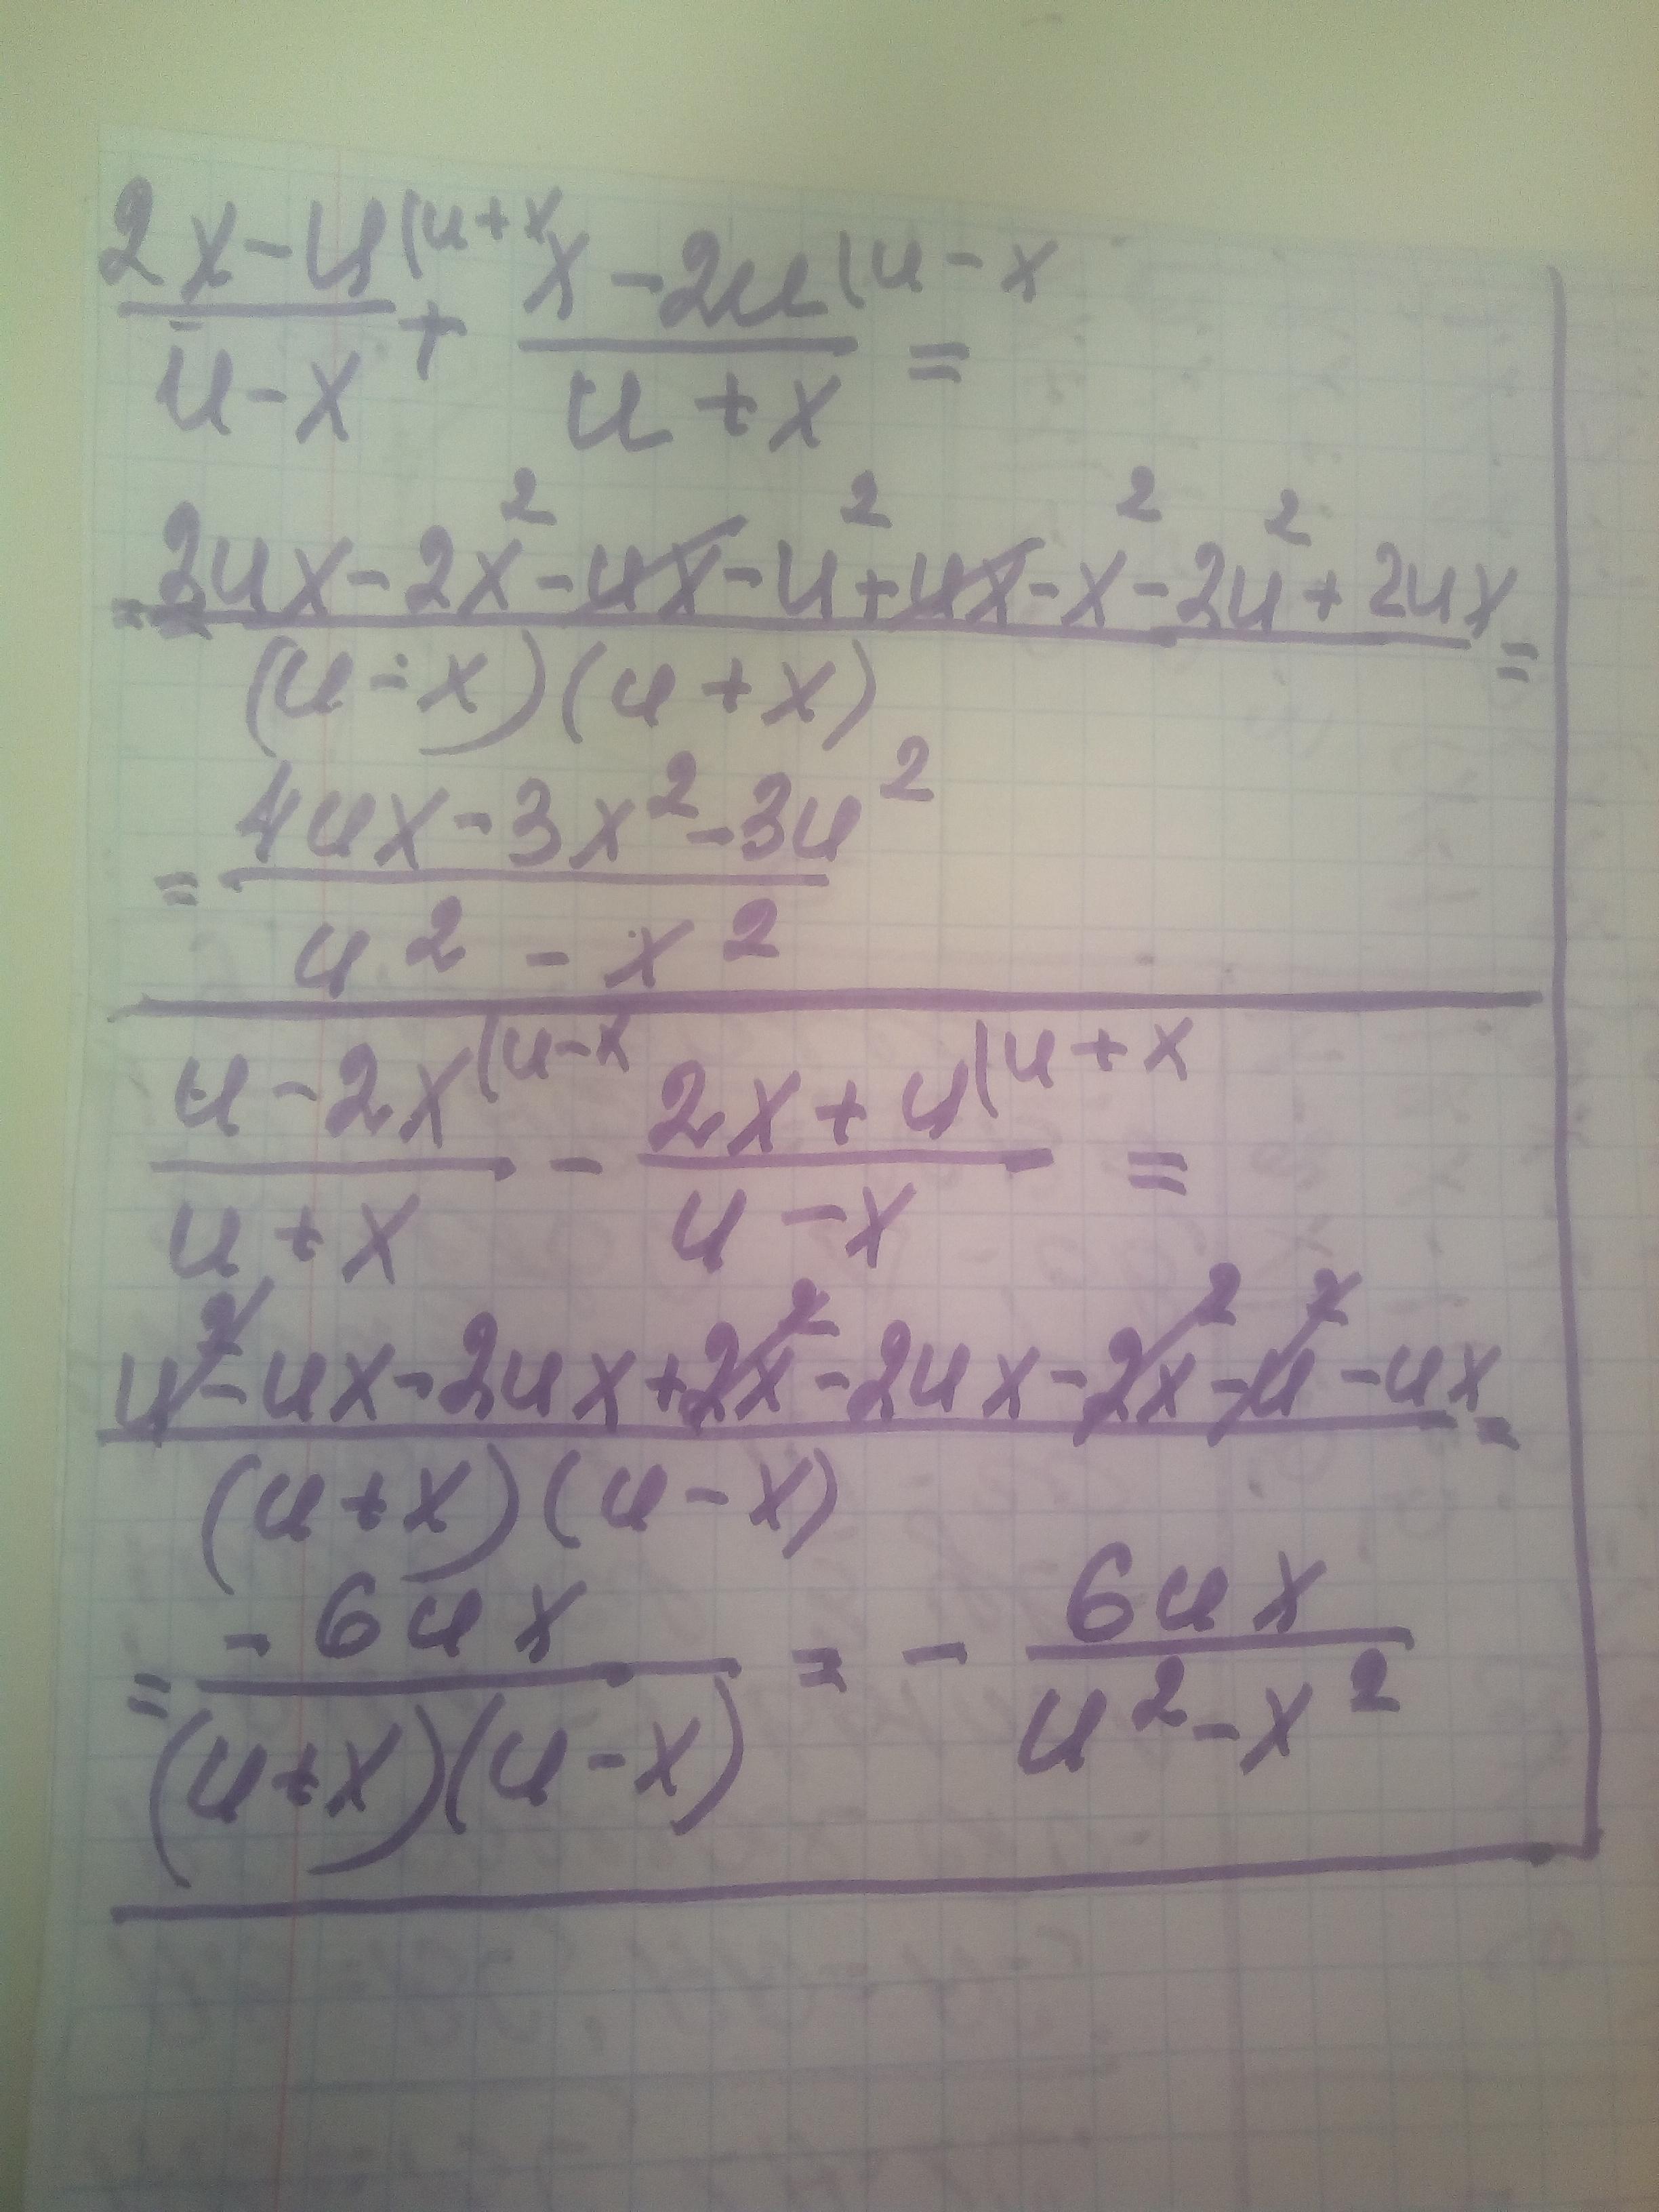 2x-u(u+x + x-2u(u-x =
u-x u+x
= 2ux-2x²-ux-u²+ux-x²-2u²+2ux =
(u-x)(u+x)
= 4ux-3x²-3u²
u²-x²
u-2x(u-x - 2x+u(u+x =
u+x u-x
u²-ux-2ux+2x²-2ux-2x²-u²-ux =
(u+x)(u-x)
= -6ux = - 6ux
(u+x)(u-x) u²-x²